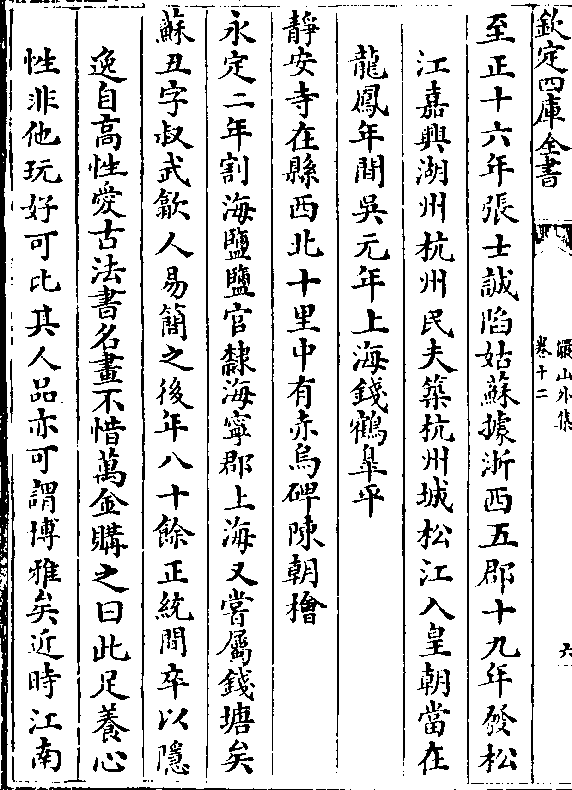 欽定四庫全書
儼山外集
卷十二
六
至正十六年張士誠陷姑蘇據浙西五郡十九年發松
江嘉興湖州杭州民夫築杭州城松江入皇朝當在
龍鳳年間吳元年上海錢鶴臯平
靜安寺在縣西北十里中有赤烏碑陳朝檜
永定二年割海鹽鹽官隸海寧郡上海又嘗屬錢塘矣
蘇丑字叔武歙人易簡之後年八十餘正統間卒以隱
逸自高性愛古法書名畫不惜萬金購之曰此足養心
性非他玩好可比其人品亦可謂博雅矣近時江南